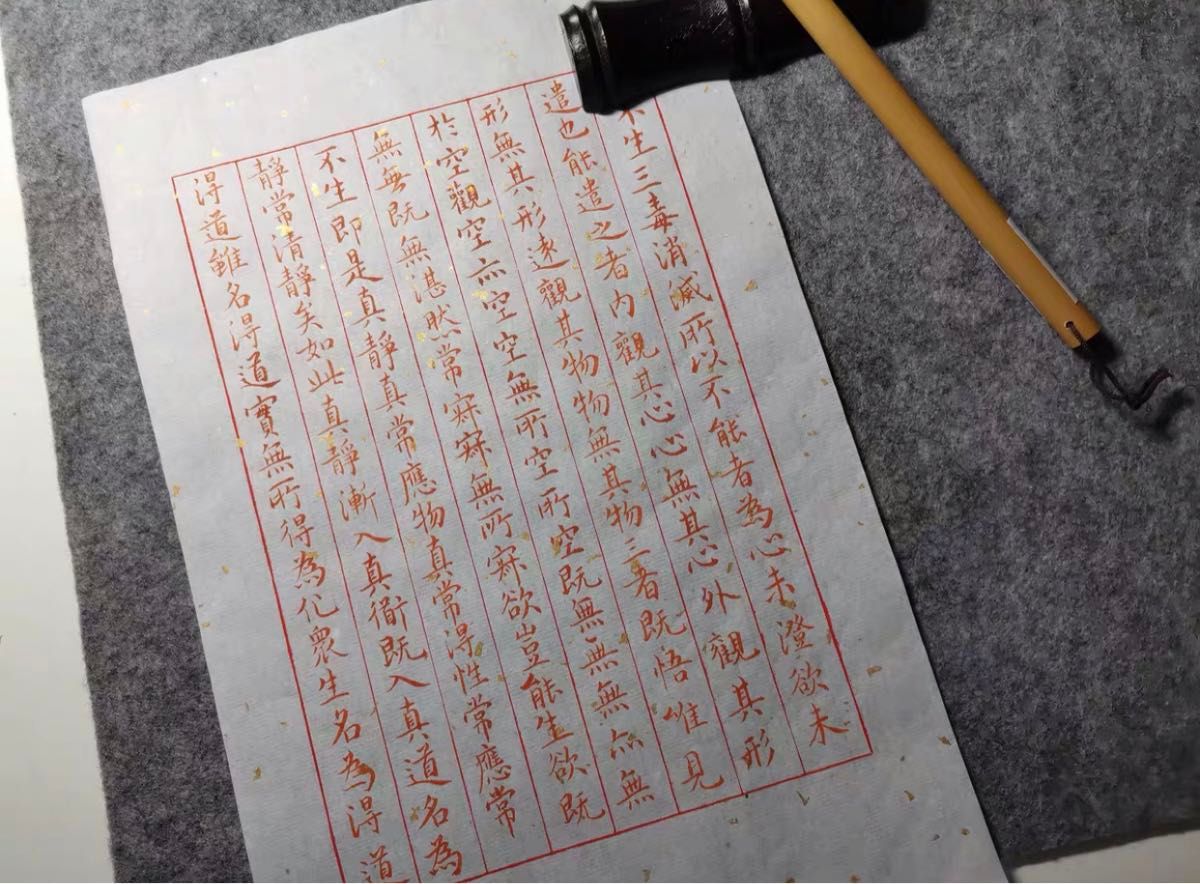 不生三毒消滅所以不能者為心未澄欲未
遣也能遣之者内觀其心心無其心外觀其形
形無其形遠觀其物物無其物三者既悟唯見
於空觀空亦空空無所空所空既無無無亦無
無無既無湛然常寂寂無所寂欲豈能生欲既
不生即是真靜真常應物真常得性常應常
靜常清靜矣如此真靜漸入真衜既入真道名為
得道雖名得道實無所得為化衆生名為得道